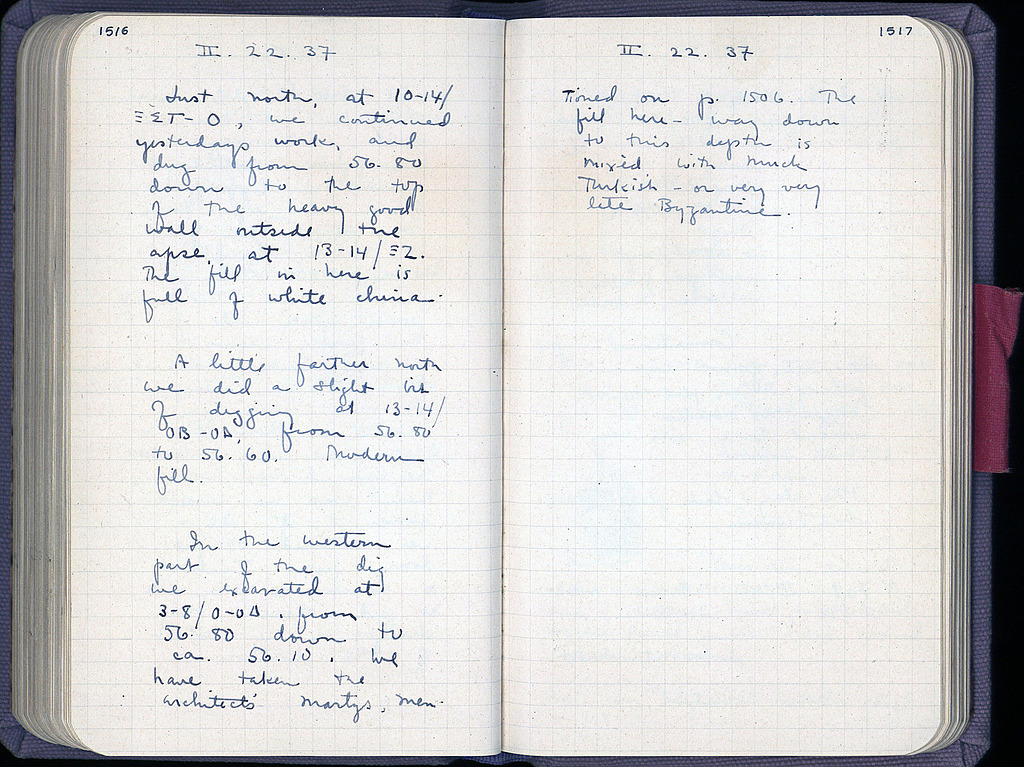 1516
II. 22. 37
Just north, at 10-14/
ΞΣΤ-Ο, we continued
yesterdays work, and
dug from 56.80
down to the top
of the heavy good
wall outside the
apse, at 13-14/ΞΖ.
The fill in here is
full of white china.
A little farther north
we did a slight bit
of digging at 13-14/
ΟΒ-ΟΔ, from 56.80
to 56.60. Modern
fill.
In the western
part of the dig
we excavated at
3-8/Ο-ΟΔ, from
56.80 down to
ca. 56.10. We
have taken the
architects' martys, men-
1517
II. 22. 37
tioned on p. 1506. The
fill here - way down
to this depth is
mixed with much
Turkish - or very very
late Byzantine.